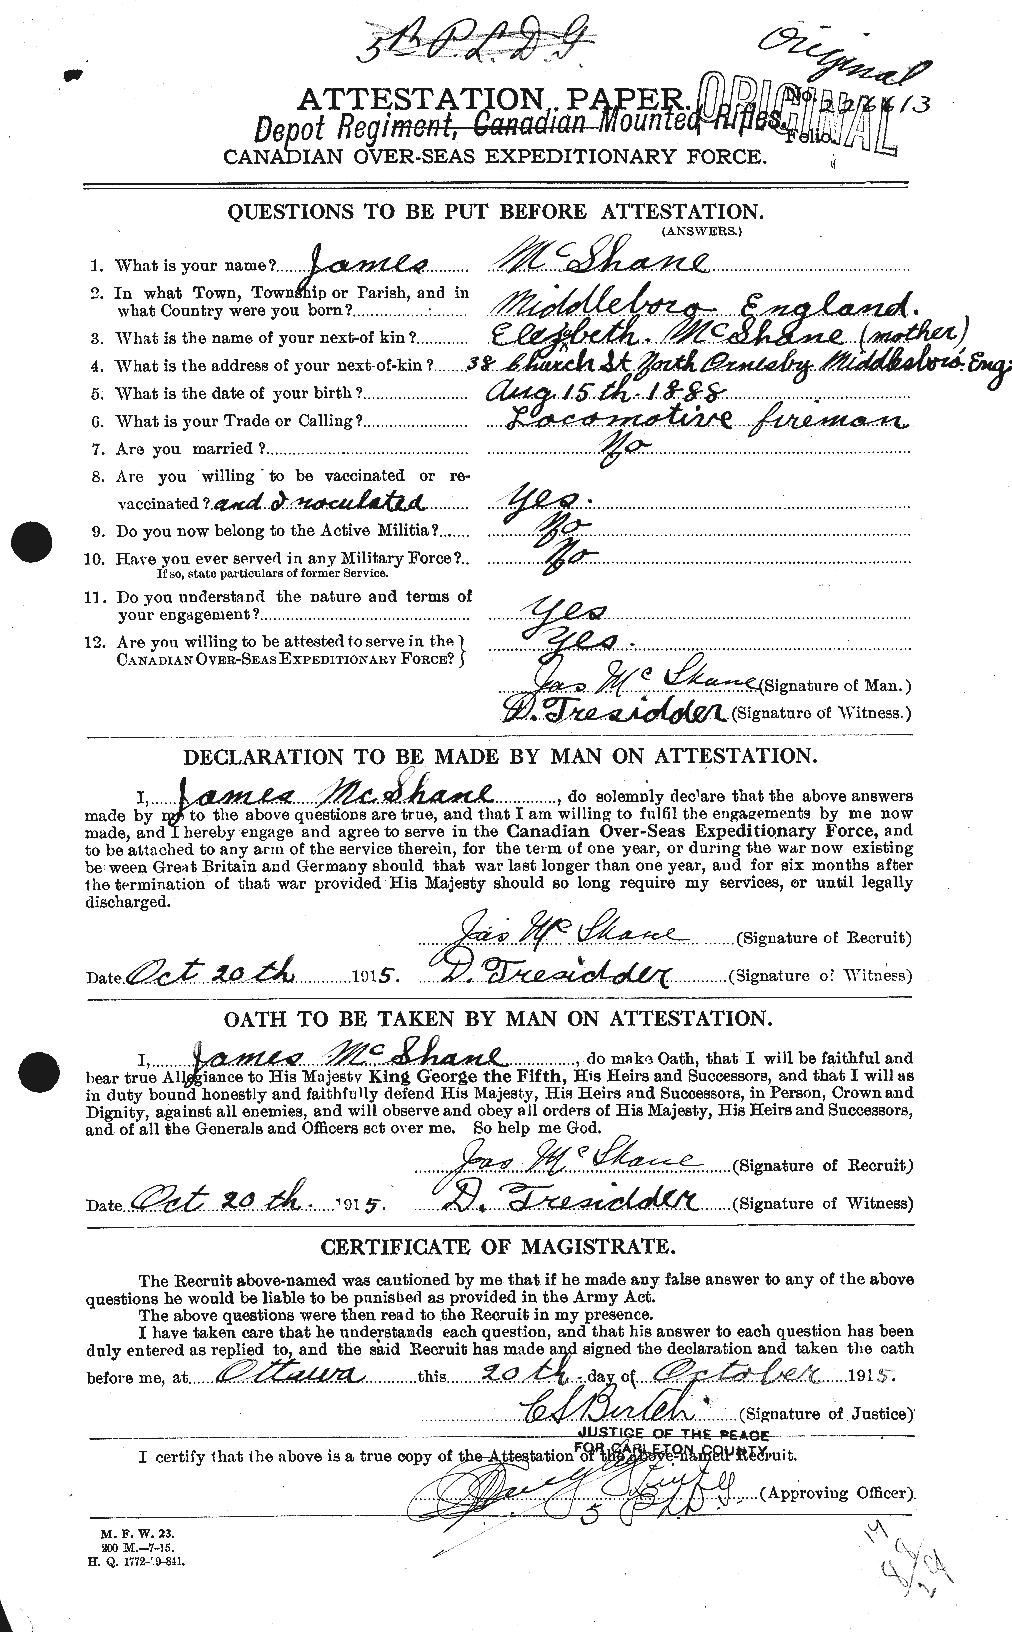 5th P.L.D.G
Original
ORIGINAL
ATTESTATION PAPER.
No.
Depot Regiment, Canadian Mounted Rifles.
Folio.
CANADIAN OVER-SEAS EXPEDITIONARY FORCE.
QUESTIONS TO BE PUT BEFORE ATTESTATION.
(ANSWERS.)
1. What is your name? James McShane
2. In what Town, Township or Parish, and in
what Country were you born? Middleboro England.
3. What is the name of your next-of kin? Elezbeth. McShane (mother)
4. What is the address of your next-of-kin? 38 Church St North Ormesby Middlesboro. Eng
5. What is the date of your birth? Aug 15th 1888
6. What is your Trade or Calling? Locomotive fireman
7. Are you married? No
8. Are you willing to be vaccinated or re-
vaccinated? and Inoculated Yes.
9. Do you now belong to the Active Militia? No
10. Have you ever served in any Military Force? No
If so, state particulars of former Service.
11. Do you understand the nature and terms of
your engagement? Yes
12. Are you willing to be attested to serve in the
CANADIAN OVER-SEAS EXPEDITIONARY FORCE? Yes.
Jas McShane (Signature of Man.)
D. Tresidder (Signature of Witness.)
DECLARATION TO BE MADE BY MAN ON ATTESTATION.
I, James McShane, do solemnly declare that the above answers
made by me to the above questions are true, and that I am willing to fulfil the engagements by me now
made, and I hereby engage and agree to serve in the Canadian Over-Seas Expeditionary Force, and
to be attached to any arm of the service therein, for the term of one year, or during the war now existing
be ween Great Britain and Germany should that war last longer than one year, and for six months after
the termination of that war provided His Majesty should so long require my services, or until legally
discharged.
Jas McShane (Signature of Recruit)
Date Oct 20th 1915. D. Tresidder (Signature of Witness)
OATH TO BE TAKEN BY MAN ON ATTESTATION.
I, James McShane, do make Oath, that I will be faithful and
bear true Allegiance to His Majesty King George the Fifth, His Heirs and Successors, and that I will as
in duty bound honestly and faithfully defend His Majesty, His Heirs and Successors, in Person, Crown and
Dignity, against all enemies, and will observe and obey all orders of His Majesty, His Heirs and Successors,
and of all the Generals and Officers set over me. So help me God.
Jas McShane (Signature of Recruit)
Date Oct 20th. 1915. D. Tresidder (Signature of Witness)
CERTIFICATE OF MAGISTRATE.
The Recruit above-named was cautioned by me that if he made any false answer to any of the above
questions he would be liable to be punished as provided in the Army Act.
The above questions were then read to the Recruit in my presence.
I have taken care that he understands each question, and that his answer to each question has been
duly entered as replied to, and the said Recruit has made and signed the declaration and taken the oath
before me, at Ottawa this 20th day of October 1915.
(Signature of Justice)
JUSTICE OF THE PEACE
FOR CARLETON COUNTY
I certify that the above is a true copy of the Attestation of the above-named Recruit.
(Approving Officer)
M. F. W. 23.
200 M.—7-15.
H. Q. 1772-39-841.